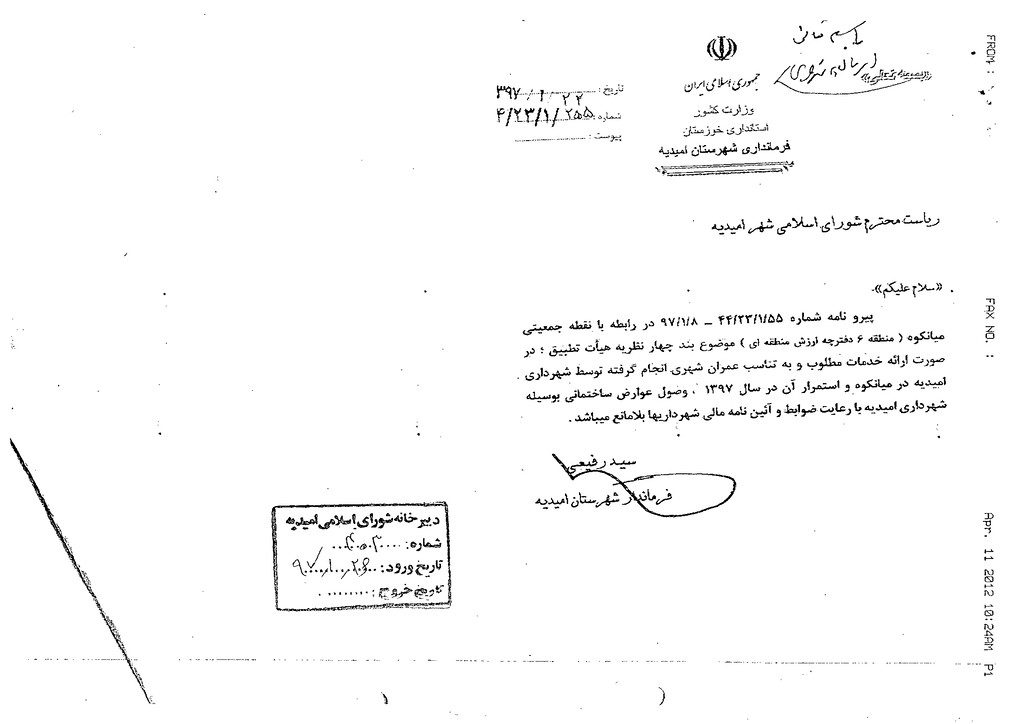 باسمه تعالی
«بسمه تعالی»
جمهوری اسلامی ایران
وزارت کشور
استانداری خوزستان
فرمانداری شهرستان امیدیه
تاریخ : ۳۹۷/۱/۲۲
شماره : ۴/۲۳/۱/۲۵۵
پیوست :
ریاست محترم شورای اسلامی شهر امیدیه
«سلام علیکم»
پیرو نامه شماره ۴۴/۲۳/۱/۵۵ – ۹۷/۱/۸ در رابطه با نقطه جمعیتی
میانکوه ( منطقه ۶ دفترچه ارزش منطقه ای ) موضوع بند چهار نظریه هیأت تطبیق ؛ در
صورت ارائه خدمات مطلوب و به تناسب عمران شهری انجام گرفته توسط شهرداری
امیدیه در میانکوه و استمرار آن در سال ۱۳۹۷ ، وصول عوارض ساختمانی بوسیله
شهرداری امیدیه با رعایت ضوابط و آئین نامه مالی شهرداریها بلامانع میباشد .
سید رفیعی
فرماندار شهرستان امیدیه
دبیرخانه شورای اسلامی امیدیه
شماره:
تاریخ ورود:
تاریخ خروج:
FROM :
FAX NO. :
Apr. 11 2012 10:24AM P1